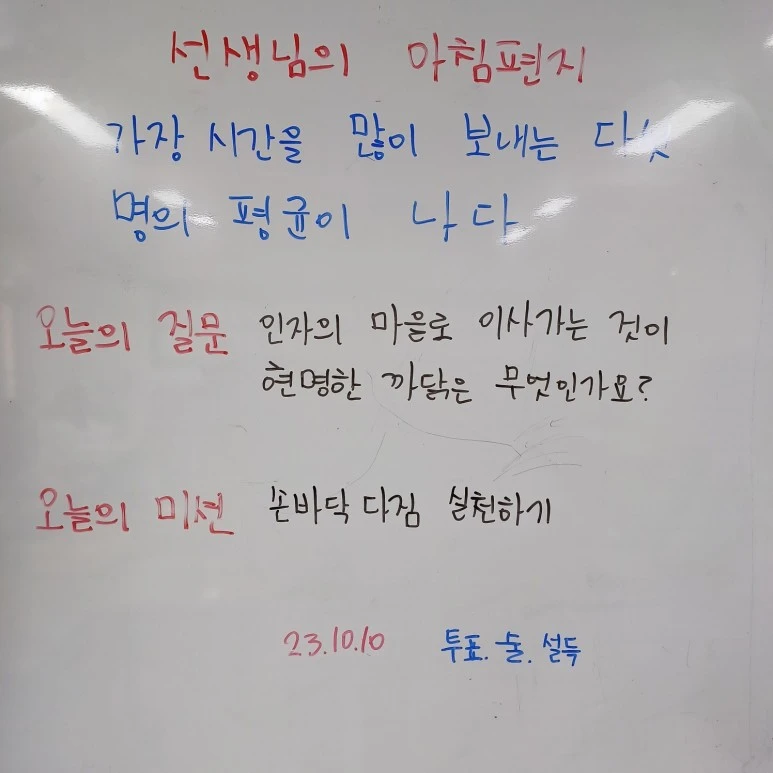 선생님의 아침편지
가장 시간을 많이 보내는 다섯
명의 평균이 나다
오늘의 질문 인자의 마을로 이사가는 것이
현명한 까닭은 무엇인가요?
오늘의 미션 손바닥 다짐 실천하기
23.10.10 투표. 돌. 설득